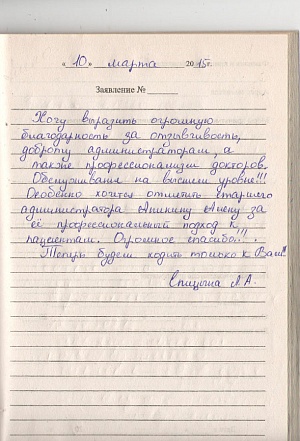 « 10 » марта 2015 г.
Заявление №
Хочу выразить огромную
благодарность за отзывчивость,
доброту администраторам, а
также профессионализм докторов.
Обслуживание на высшем уровне!!!
Особенно хочется отметить старшего
администратора Аникину Алену за
её профессиональный подход к
пациентам. Огромное спасибо!!!.
Теперь будем ходить только к Вам!!
Спицына Л.А.